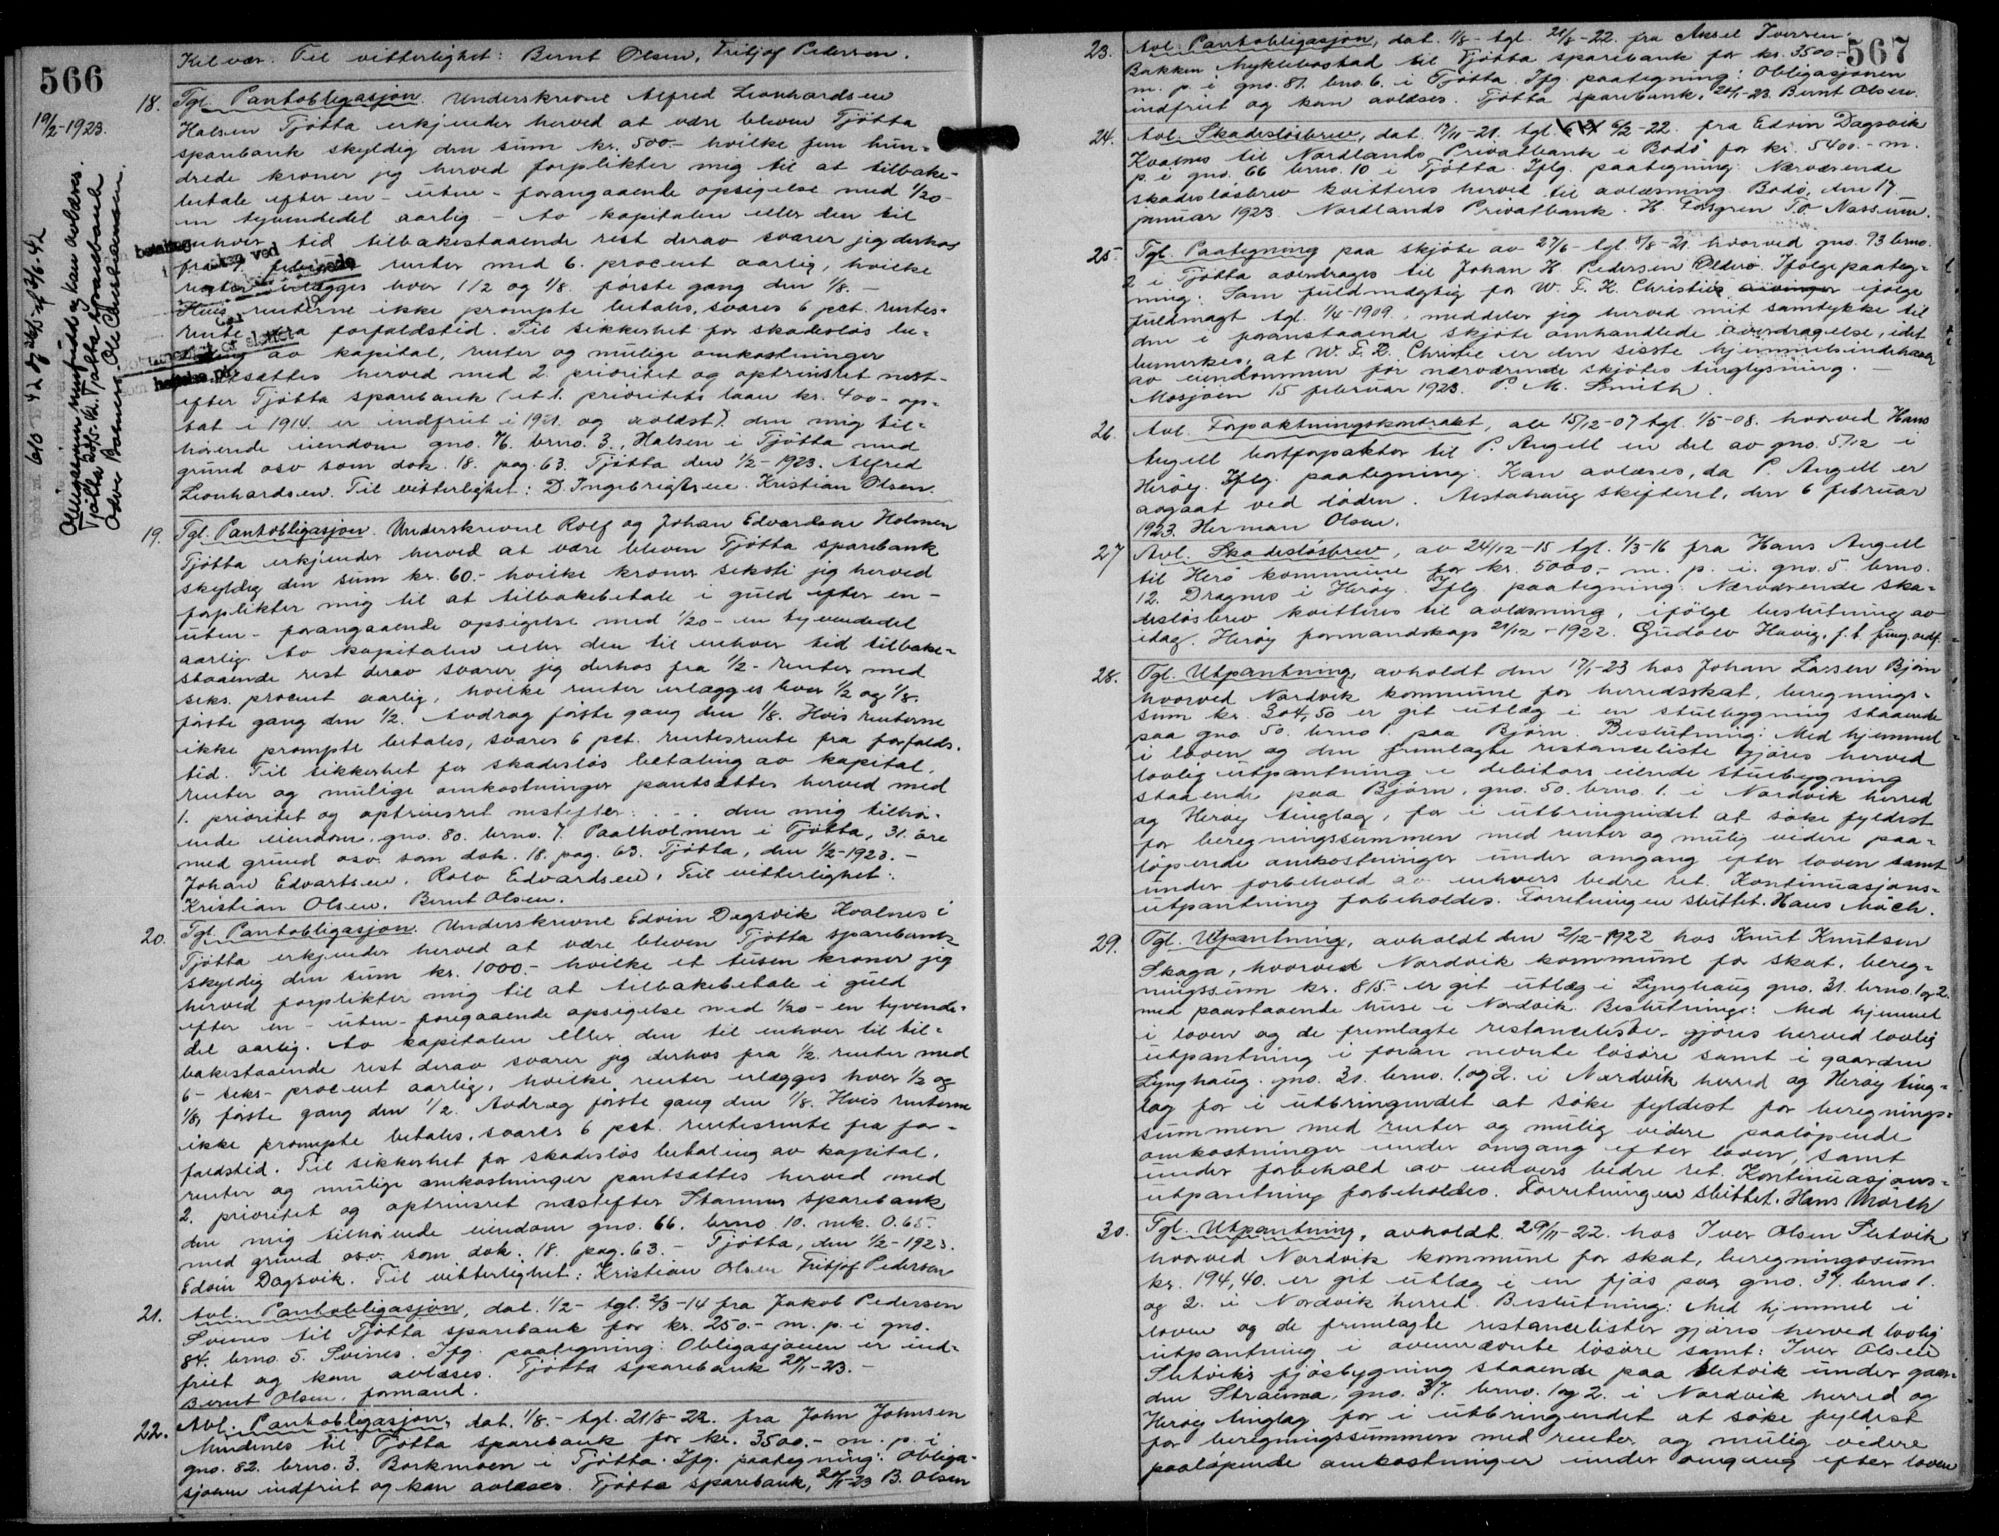 566
19/2-1923.
Kilvær. Til vitterlighet: Bernt Olsen, Fritjof Pedersen.
18. Tgl. Pantobligasjon. Underskrevne Alfred Leonhardsen
Halsen Tjötta erkjender herved at være bleven Tjötta
sparebank skyldig den sum kr. 500.- hvilke fem hun-
drede kroner jeg herved forplikter mig til at tilbake-
betale efter en - uten - forangaaende opsigelse med 1/20-
en tyvendedel aarlig - Av kapitalen eller den til
enhver tid tilbakestaaende rest derav svarer jeg derhos
fra 1 februar renter med 6. procent aarlig, hvilke
renter erlægges hver 1/2 og 1/8. förste gang den 1/8. -
Hvis renterne ikke prompte betales, svares 6 pct. rentes-
rente fra forfaldstid. Til sikkerhet for skadeslös be-
av kapital, renter og mulige omkostninger
herved med 2 prioritet og optrinsret næst-
efter Tjötta sparebank (et 1. prioritets laan kr. 400- op-
tat i 1914. er indfriet i 1921. og avlæst). den mig til-
hörende eiendom gno. 76. brno. 3., Halsen i Tjötta med
grund osv som dok. 18. pag. 63. Tjötta den 1/2-1923. Alfred
Leonhardsen. Til vitterlighet: D. Ingebrigtsen. Kristian Olsen.
19. Tgl. Pantobligasjon. Underskrevne Rolf og Johan Edvardsen Holmen
Tjötta erkjender herved at være bleven Tjötta sparebank
skyldig den sum kr. 60.- hvilke kroner seksti jeg herved
forplikter mig til at tilbakebetale i guld efter en -
uten - forangaaende opsigelse med 1/20 - en tyvendedel
aarlig. Av kapitalen eller den til enhver tid tilbake-
staaende rest derav svarer jeg derhos fra 1/2 - renter med
seks procent aarlig, hvilke renter erlægges hver 1/2 og 1/8.
förste gang den 1/2. Avdrag förste gang den 1/8. Hvis renterne
ikke prompte betales, svares 6 pct. rentesrente fra forfalds-
tid. Til sikkerhet for skadeslös betaling av kapital,
renter og mulige omkostninger pantsættes herved med
1. prioritet og optrinsret næstefter: . . . den mig tilhö-
rende eiendom, gno. 80. brno. 7. Paalholmen i Tjötta, 31. öre
med grund osv. som dok. 18. pag. 63. Tjötta, den 1/2-1923. -
Johan Edvartsen. Rolv Edvardsen. Til vitterlighet:
Kristian Olsen. Bernt Olsen.
20. Tgl. Pantobligasjon. Underskrevne Edvin Dagsvik Kvalnes i
Tjötta erkjender herved at være bleven Tjötta sparebank
skyldig den sum kr. 1000.- hvilke et tusen kroner jeg
herved forplikter mig til at tilbakebetale i guld
efter en - uten - foregaaende opsigelse med 1/20 - en tyvende-
del aarlig. Av kapitalen eller den til enhver tid til-
bakestaaende rest derav svarer jeg derhos fra 1/2. renter med
6 - seks - procent aarlig, hvilke renter erlægges hver 1/2 og
1/8, förste gang den 1/2. Avdrag förste gang den 1/8. Hvis renterne
ikke prompte betales, svares 6 pct. rentesrente fra for-
faldstid. Til sikkerhet for skadeslös betaling av kapital,
renter og mulige omkostninger pantsættes herved med
2. prioritet og optrinsret næstefter Stamnes sparebank
den mig tilhörende eiendom gno. 66. brno. 10. mk. 0.65.
med grund osv. som dok. 18. pag. 63. - Tjötta, den 1/2-1923.
Edvin Dagsvik. Til vitterlighet: Kristian Olsen Fritjof Pedersen
21. Avl. Pantobligasjon, dat. 1/2 - tgl. 2/3-14 fra Jakob Pedersen
Svines til Tjötta sparebank for kr. 250.- m. p. i gno.
84. brno. 5. Svines. Ifg. paategning: Obligasjonen er ind-
friet og kan avlæses. Tjötta sparebank 20/1-23. -
Bernt Olsen. formand.
22. Avl. Pantobligasjon, dat. 1/8.- tgl. 21/8-22. fra John Johnsen
Mindnes til Tjötta sparebank for kr. 3500.- m. p. i
gno. 82. brno. 3. Borkmoen i Tjötta. Ifg. paategning: Obliga-
sjonen indfriet og kan avlæses. Tjötta sparebank, 20/1-23 B. Olsen
567
23. Avl. Pantobligasjon, dat. 1/8 - tgl. 21/8-22. fra Aksel Iversen
Bakken Myklebostad til Tjötta sparebank for kr. 3500.-
m. p. i gno. 81. brno. 6. i Tjötta. Ifg. paategning: Obligasjonen
indfriet og kan avlæses. Tjötta sparebank, 20/1-23. Bernt Olsen.
24. Avl. Skadeslösbrev, dat. 17/11-21. tgl. 6/2-22. fra Edvin Dagsvik
Kvalnes til Nordlands Privatbank i Bodö for kr. 5400.- m.
p. i gno. 66 brno. 10 i Tjötta. Iflg. paategning: Nærværende
skadeslösbrev kvitteres herved til avlæsning. Bodö, den 17
januar 1923. Nordlands Privatbank. H. Forsgren T.O. Nassum.
25. Tgl. Paategning paa skjöte av 27/6 - tgl 8/8-21. hvorved gno. 93 brno.
2 i Tjötta overdrages til Johan H. Pedersen Olderö. Ifölge paateg-
ning: Som fuldmægtig for W. F. K. Christies ifölge
fuldmagt tgl. 1/4-1909, meddeler jeg herved mit samtykke til
den i foranstaaende skjöte omhandlede overdragelse, idet
bemerkes, at W. F. K. Christie er den sisste hjemmelsindehaver
av eiendommen för nærværende skjötes tinglysning. -
Mosjöen 15 februar 1923. P M. Smith.
26. Avl. Forpaktningskontrakt, av 15/12-07 tgl. 1/5-08. hvorved Hans
Angell bortforpakter til P. Angell en del av gno. 5/12 i
Heröy. Iflg. paategning: Kan avlæses, da P. Angell er
avgaat ved döden. Alstahaug skifteret, den 6 februar
1923. Herman Olsen.
27 Avl. Skadeslösbrev, av 24/12-15 tgl. 1/3-16 fra Hans Angell
til Herö kommune for kr. 5000,- m. p. i. gno. 5. brno.
12. Dragnes i Heröy. Iflg. paategning: Nærværende ska-
deslösbrev kvitteres til avlæsning, ifölge beslutning av
idag. Heröy formandskap 21/12-1922. Gudolv Havig, f.t. fung. ordf.
28. Tgl. Utpantning, avholdt den 17/1-23 hos Johan Larsen Björn
hvorved Nordvik kommune for herredsskat, beregnings-
sum kr. 304,50 er git utlæg i en stuebygning staaende
paa gno. 50. brno 1. paa Björn. Beslutning: Med hjemmel
i loven og den fremlagte restanceliste gjöres herved
lovlig utpantning i debitors eiende stuebygning
staaende paa Björn, gno. 50. brno. 1. i Nordvik herred
og Heröy tinglag, for i utbringendet at söke fyldest
for beregningssummen med renter og mulig videre paa-
löpende omkostninger under omgang efter loven samt
under forbehold av enhvers bedre ret. Kontinuasjons-
utpantning forbeholdes. Forretningen sluttet. Hans Mörch.
29. Tgl. Utpantning, avholdt den 2/12-1922 hos Knut Knutsen
Skaga, hvorved Nordvik kommune for skat, bereg-
ningssum kr. 815.- er git utlæg i Lynghaug gno. 31. brno. 1 og 2.
med paastaaende huse i Nordvik. Beslutning: Med hjemmel
i loven og de fremlagte restanceliste - gjöres herved lovlig
utpantning i foran nevnte lösöre samt i gaarden
Lynghaug. gno. 31. brno. 1. og 2. i Nordvik herred og Heröy ting-
lag for i utbringendet at söke fyldest for beregnings-
summen med renter og mulig videre paalöpende
omkostninger under omgang efter loven, samt
under forbehold av enhvers bedre ret. Kontinuasjons-
utpantning forbeholdes. Forretningen sluttet. Hans Mörch
30. Tgl. Utpantning, avholdt. 29/11-22. hos Iver Olsen Sletvik
hvorved Nordvik kommune for skat, beregningssum
kr. 194,40. er git utlæg i en fjös paa gno. 37. brno 1.
og 2. i Nordvik herred. Beslutning: Med hjemmel i
loven og de fremlagte restancelister gjöres herved lovlig
utpantning i ovennævnte lösöre samt: Iver Olsen
Sletviks fjösbygning staaende paa Sletvik under gaar-
den Strauma, gno. 37. brno. 1 og 2. i Nordvik herred og
Heröy tinglag for i utbringendet at söke fyldest
for beregningssummen med renter og mulig videre
paalöpende omkostninger under omgang efter loven
Obligasjonen innfridd og kan avlæses.
Tjötta 23/5-42. Tjötta Sparebank
Ole Christensen.